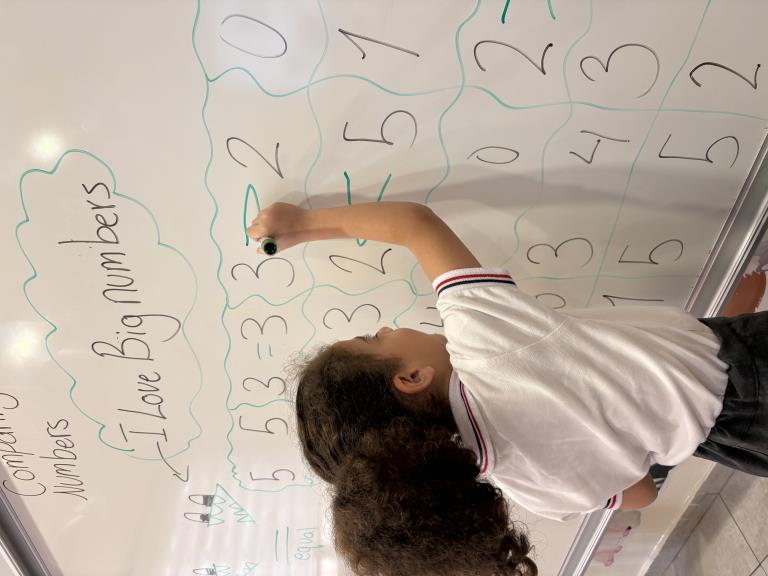 Comparing
Numbers
I Love Big numbers
equal
=
5 5 3 = 3 3 > 2 0
3 2 < 5 1
0 2 =
3 4 3
1 5 5 2